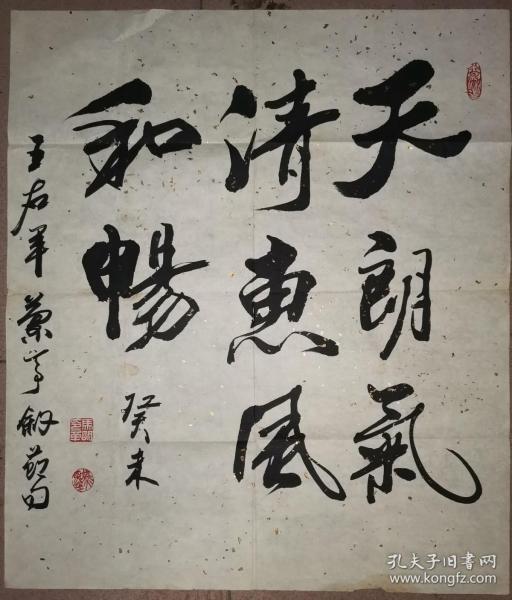 天朗氣
清惠風
和暢
癸未
王右軍蘭亭敘節句
孔夫子旧书网
www.kongfz.com